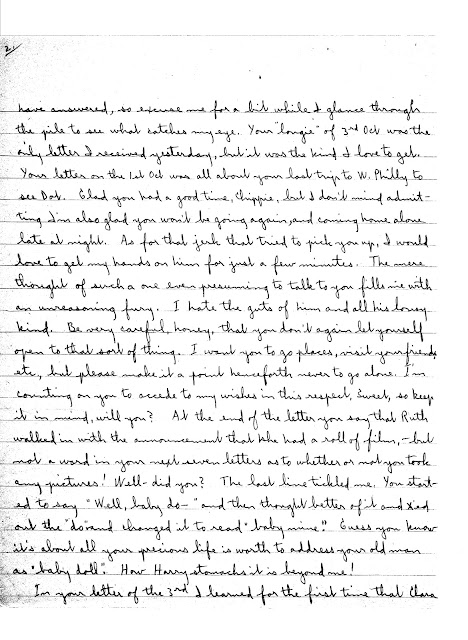 2./
have answered, so excuse me for a bit while I glance through
the pile to see what catches my eye. Your "longie" of 3rd Oct was the
only letter I received yesterday, but it was the kind I love to get.
Your letter on the 1st Oct was all about your last trip to W. Philly to
see Dot. Glad you had a good time, Chippie, but I don't mind admit-
ting I'm also glad you won't be going again, and coming home alone
late at night. As for that jerk that tried to pick you up, I would
love to get my hands on him for just a few minutes. The mere
thought of such a one even presuming to talk to you fills me with
an unreasoning fury. I hate the guts of him and all his lousy
kind. Be very careful, honey, that you don't again let yourself
open to that sort of thing. I want you to go places, visit your friends
etc, but please make it a point henceforth never to go alone. I'm
counting on you to accede to my wishes in this respect, Sweet, so keep
it in mind, will you? At the end of the letter you say that Ruth
walked in with the announcement that she had a roll of film, - but
not a word in your next seven letters as to whether or not you took
any pictures! Well - did you? The last line tickled me. You start-
ed to say "Well, baby do-" and then thought better of it and Xied
out the "do" and changed it to read "baby mine". Guess you know
it's about all your precious life is worth to address your old man
as "baby doll". How Harry stomachs it is beyond me!
In your letter of the 3rd I learned for the first time that Clara